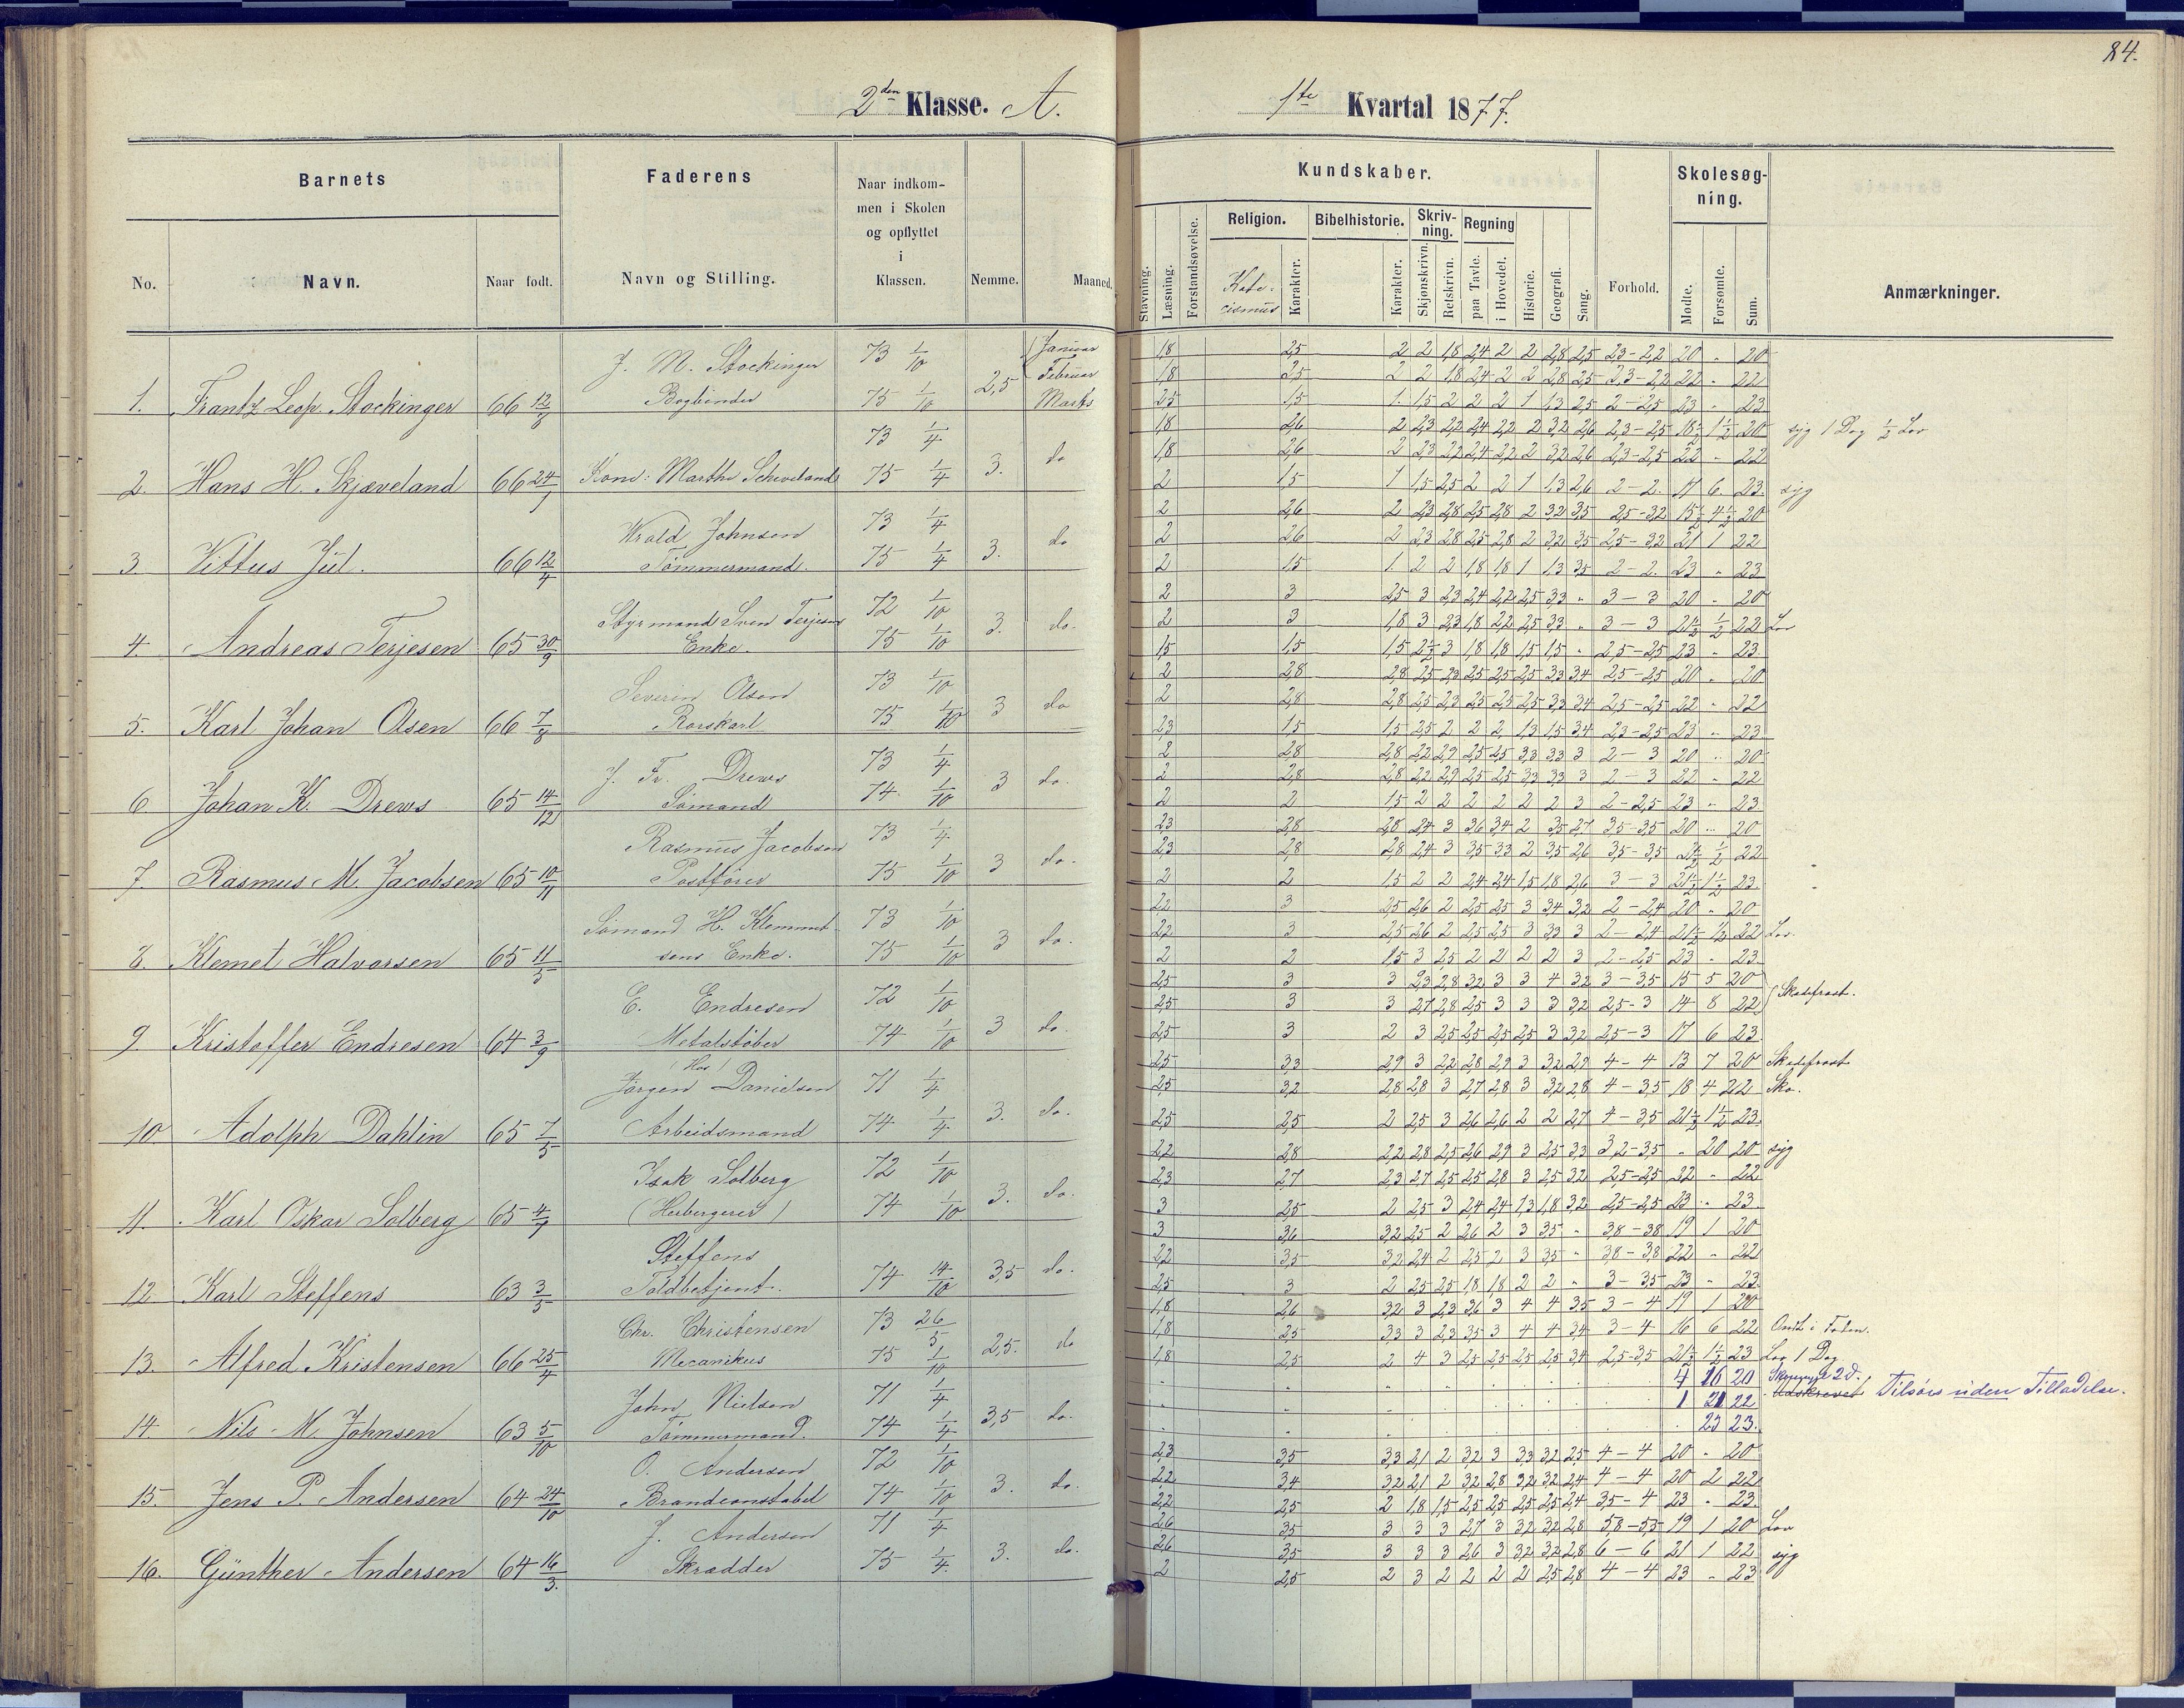 84.
2den Klasse. A.
1ste Kvartal 1877.
Barnets
Faderens
Naar indkommen i Skolen og opflyttet i Klassen.
Nemme.
Maaned.
No.
Navn.
Naar født.
Navn og Stilling.
Kundskaber.
Stavning.
Læsning.
Forstandsøvelse.
Religion.
Katecismus
Karakter.
Bibelhistorie.
Karakter.
Skrivning.
Skjønskrivn.
Retskrivn.
Regning
paa Tavle.
i Hovedet.
Historie.
Geografi.
Sang.
Forhold.
Skolesøgning.
Mødte.
Forsømte.
Sum.
Anmærkninger.
J. M. Stockinger 73 1/10 Januar 1,8 2,5 2 2 1,8 2,4 2 2 2,8 2,5 2,3-2,2 20 " 20
Februar 1,8 2,5 2 2 1,8 2,4 2 2 2,8 2,5 2,3-2,2 22 " 22
1. Frantz Leop. Stockinger 66 12/8 Bogbinder 75 1/10 2,5 Marts 2,5 1,5 1. 1,5 2 2 2 1 1,3 2,5 2-2,5 23 " 23
73 1/4 1,8 2,6 2 2,3 2,2 2,4 2,2 2 3,2 2,6 2,3-2,5 18 1/2 1 1/2 20 syg 1 Dag 1/2 Lov
do 1,8 2,6 2 2,3 2,2 2,4 2,2 2 3,2 2,6 2,3-2,5 22 " 22
2. Hans H. Skjæveland 66 24/9 Kone: Marthe 75 1/4 3. 2 1,5 1 1,5 2,5 2 2 1 1,3 2,6 2-2. 17 6 23. syg
Johnsen 73 1/4 2 2,6 2 2,3 2,8 2,5 2,8 2 3,2 3,5 2,5-3,2 15 1/2 4 1/2 20
do 2 2,6 2 2,3 2,8 2,5 2,8 2 3,2 3,5 2,5-3,2 21 1 22
3. Vittus Jul. 66 12/4 Tømmermand. 75 1/4 3. 2 1,5 1. 2 2 1,8 1,8 1 1,3 3,5 2-2. 23 " 23
Styrmand Sven Terjesens 72 1/10 2 3 2,5 3 2,3 2,4 2,2 2,5 3,3 " 3-3 20 " 20
do. 2 3 1,8 3 2,3 1,8 2,2 2,5 3,3 " 3-3 21 1/2 1/2 22 Lov
4. Andreas Terjesen 65 30/9 Enke. 75 1/10 3. 1,5 1,5 1,5 2 1/2 3 1,8 1,8 1,5 1,5 " 2,5-2,5 23 " 23.
Severin Olsen 73 1/10 2 2,8 2,8 2,5 2,3 2,5 2,5 2,5 3,3 3,4 2,5-2,5 20 " 20
do 2 2,8 2,8 2,5 2,3 2,5 2,5 2,5 3,3 3,4 2,5-2,5 22 " 22
5. Karl Johan Olsen 66 7/8 Rorskarl 75 1/10 3 2,3 1,5 1,5 2,5 2 2 2 1,3 1,5 3,4 2,3-2,5 23 " 23.
J. Fr. Drews 73 1/4 2 2,8 2,8 2,2 2,9 2,5 2,5 3,3 3,3 3 2-3 20 " 20
do. 2 2,8 2,8 2,2 2,9 2,5 2,5 3,3 3,3 3 2-3 22 " 22
6. Johan K. Drews 65 14/12 Sømand 74 1/10 3 2 2 1,5 2 2 2 2 2 2 3 2-2,5 23 " 23
Rasmus Jacobsen 73 1/4 2,3 2,8 2,8 2,4 3 3,6 3,4 2 3,5 2,7 3,5-3,5 20 " 20
do. 2,3 2,8 2,8 2,4 3 3,5 3,3 2 3,5 2,6 3,5-3,5 21 1/2 1/2 22
7. Rasmus M. Jacobsen 65 10/11 Postfører 75 1/10 3 2 2 1,5 2 2 2,4 2,4 1,5 1,8 2,6 3-3 21 1/2 1 1/2 23.
Sømand H. Klemmet- 73 1/10 2,2 3 2,5 2,6 2 2,5 2,5 3 3,4 3,2 2-2,4 20 " 20
sens Enke. do. 2,2 3 2,5 2,6 2 2,5 2,5 3 3,3 3 2-2,4 21 1/2 1/2 22 Lov.
8. Klemet Halvorsen 65 11/5 75 1/10 3 2 2 1,5 3 2,5 2 2 2 2 3 2-2,5 23 " 23.
E. Endresen 72 1/10 2,5 3 3 2,3 2,8 3,2 3 3 4 3,2 3-3,5 15 5 20
do. 2,5 3 3 2,7 2,8 2,5 3 3 3 3,2 2,5-3 14 8 22 Skadefrost.
9. Kristoffer Endresen 64 3/9 Metalstøber 74 1/10 3 2,5 3 2 3 2,5 2,5 2,5 2,5 3 3,2 2,5-3 17 6 23
(Hos) Jørgen Danielsen 71 1/4 2,5 3,3 2,9 3 2,2 2,8 2,9 3 3,2 2,9 4-4 13 7 20 Skadefrost
do. 2,5 3,2 2,8 2,8 3 2,7 2,8 3 3,2 2,8 4-3,5 18 4 22 Sko.
10. Adolph Dahlin 65 7/5 Arbeidsmand 74 1/4 3. 2,5 2,5 2 2,5 3 2,6 2,6 2 2 2,7 4-3,5 21 1/2 1 1/2 23.
Isak Solberg 72 1/10 2,2 2,8 2,2 2,8 2,5 2,6 2,9 3 2,5 3,3 3,2-3,5 " 20 20 syg
do. 2,3 2,7 2,3 2,7 2,5 2,5 2,8 3 2,5 3,2 2,5-2,5 22 " 22
11. Karl Oskar Solberg 65 4/9 (Herbergerer) 74 1/10 3. 3 2,5 2 2,5 3 2,4 2,4 1,3 1,8 3,2 2,5-2,5 23 " 23.
Steffens 3 3,6 3,2 2,5 2 2,6 2 3 3,5 " 3,8-3,8 19 1 20
do. 2,2 3,5 3,2 2,4 2 2,5 2 3 3,5 " 3,8-3,8 22 " 22
12. Karl Steffens 63 3/5 Toldbetjent. 74 14/10 3,5 2,5 3 2 2,5 2,5 1,8 1,8 2 2 " 3-3,5 23 " 23.
Chr. Christensen 73 26/5 1,8 2,6 3,2 3 2,3 3,6 3 4 4 3,5 3-4 19 1 20
do 1,8 2,5 3,3 3 2,3 3,5 3 4 4 3,4 3-4 16 6 22 Ondt i Foden.
13. Alfred Kristensen 66 25/4 Mecanikus 75 1/10 2,5. 1,8 2,5 2 4 3 2,5 2,5 2,5 2,5 3,4 2,5-3,5 21 1/2 1 1/2 23 Lov 1 Dag
John Nielsen 71 1/4 4 16 20 2 d.
do. 1 21 22 Udskrevet Tilsøes uden Tilladelse.
14. Nils M. Johnsen 63 5/10 Tømmermand. 74 1/4 3,5 23 23.
O. Andersen 72 1/10 2,3 3,5 3,3 2,1 2 3,2 3 3,3 3,2 2,5 4-4 20 " 20
do. 2,2 3,4 3,2 2,1 2 3,2 2,8 3,2 3,2 2,4 4-4 20 2 22
15. Jens P. Andersen 64 24/10 Brandconstabel 74 1/10 3. 2,2 2,5 2 1,8 1,5 2,5 2,5 2,5 2,5 2,4 3,5-4 23 " 23.
J. Andersen 71 1/4 2,6 3,5 3 3 3 2,7 3 3,2 3,2 2,8 5,8-5,5 19 1 20 Lov
do. 2,6 3,5 3 3 3 2,6 3 3,2 3,2 2,8 6-6 21 1 22 syg
16. Günther Andersen 64 16/3. Skrædder 75 1/4 3. 2 2,5 2 3 2 2 2 2 2,5 2,8 4-4 23 " 23